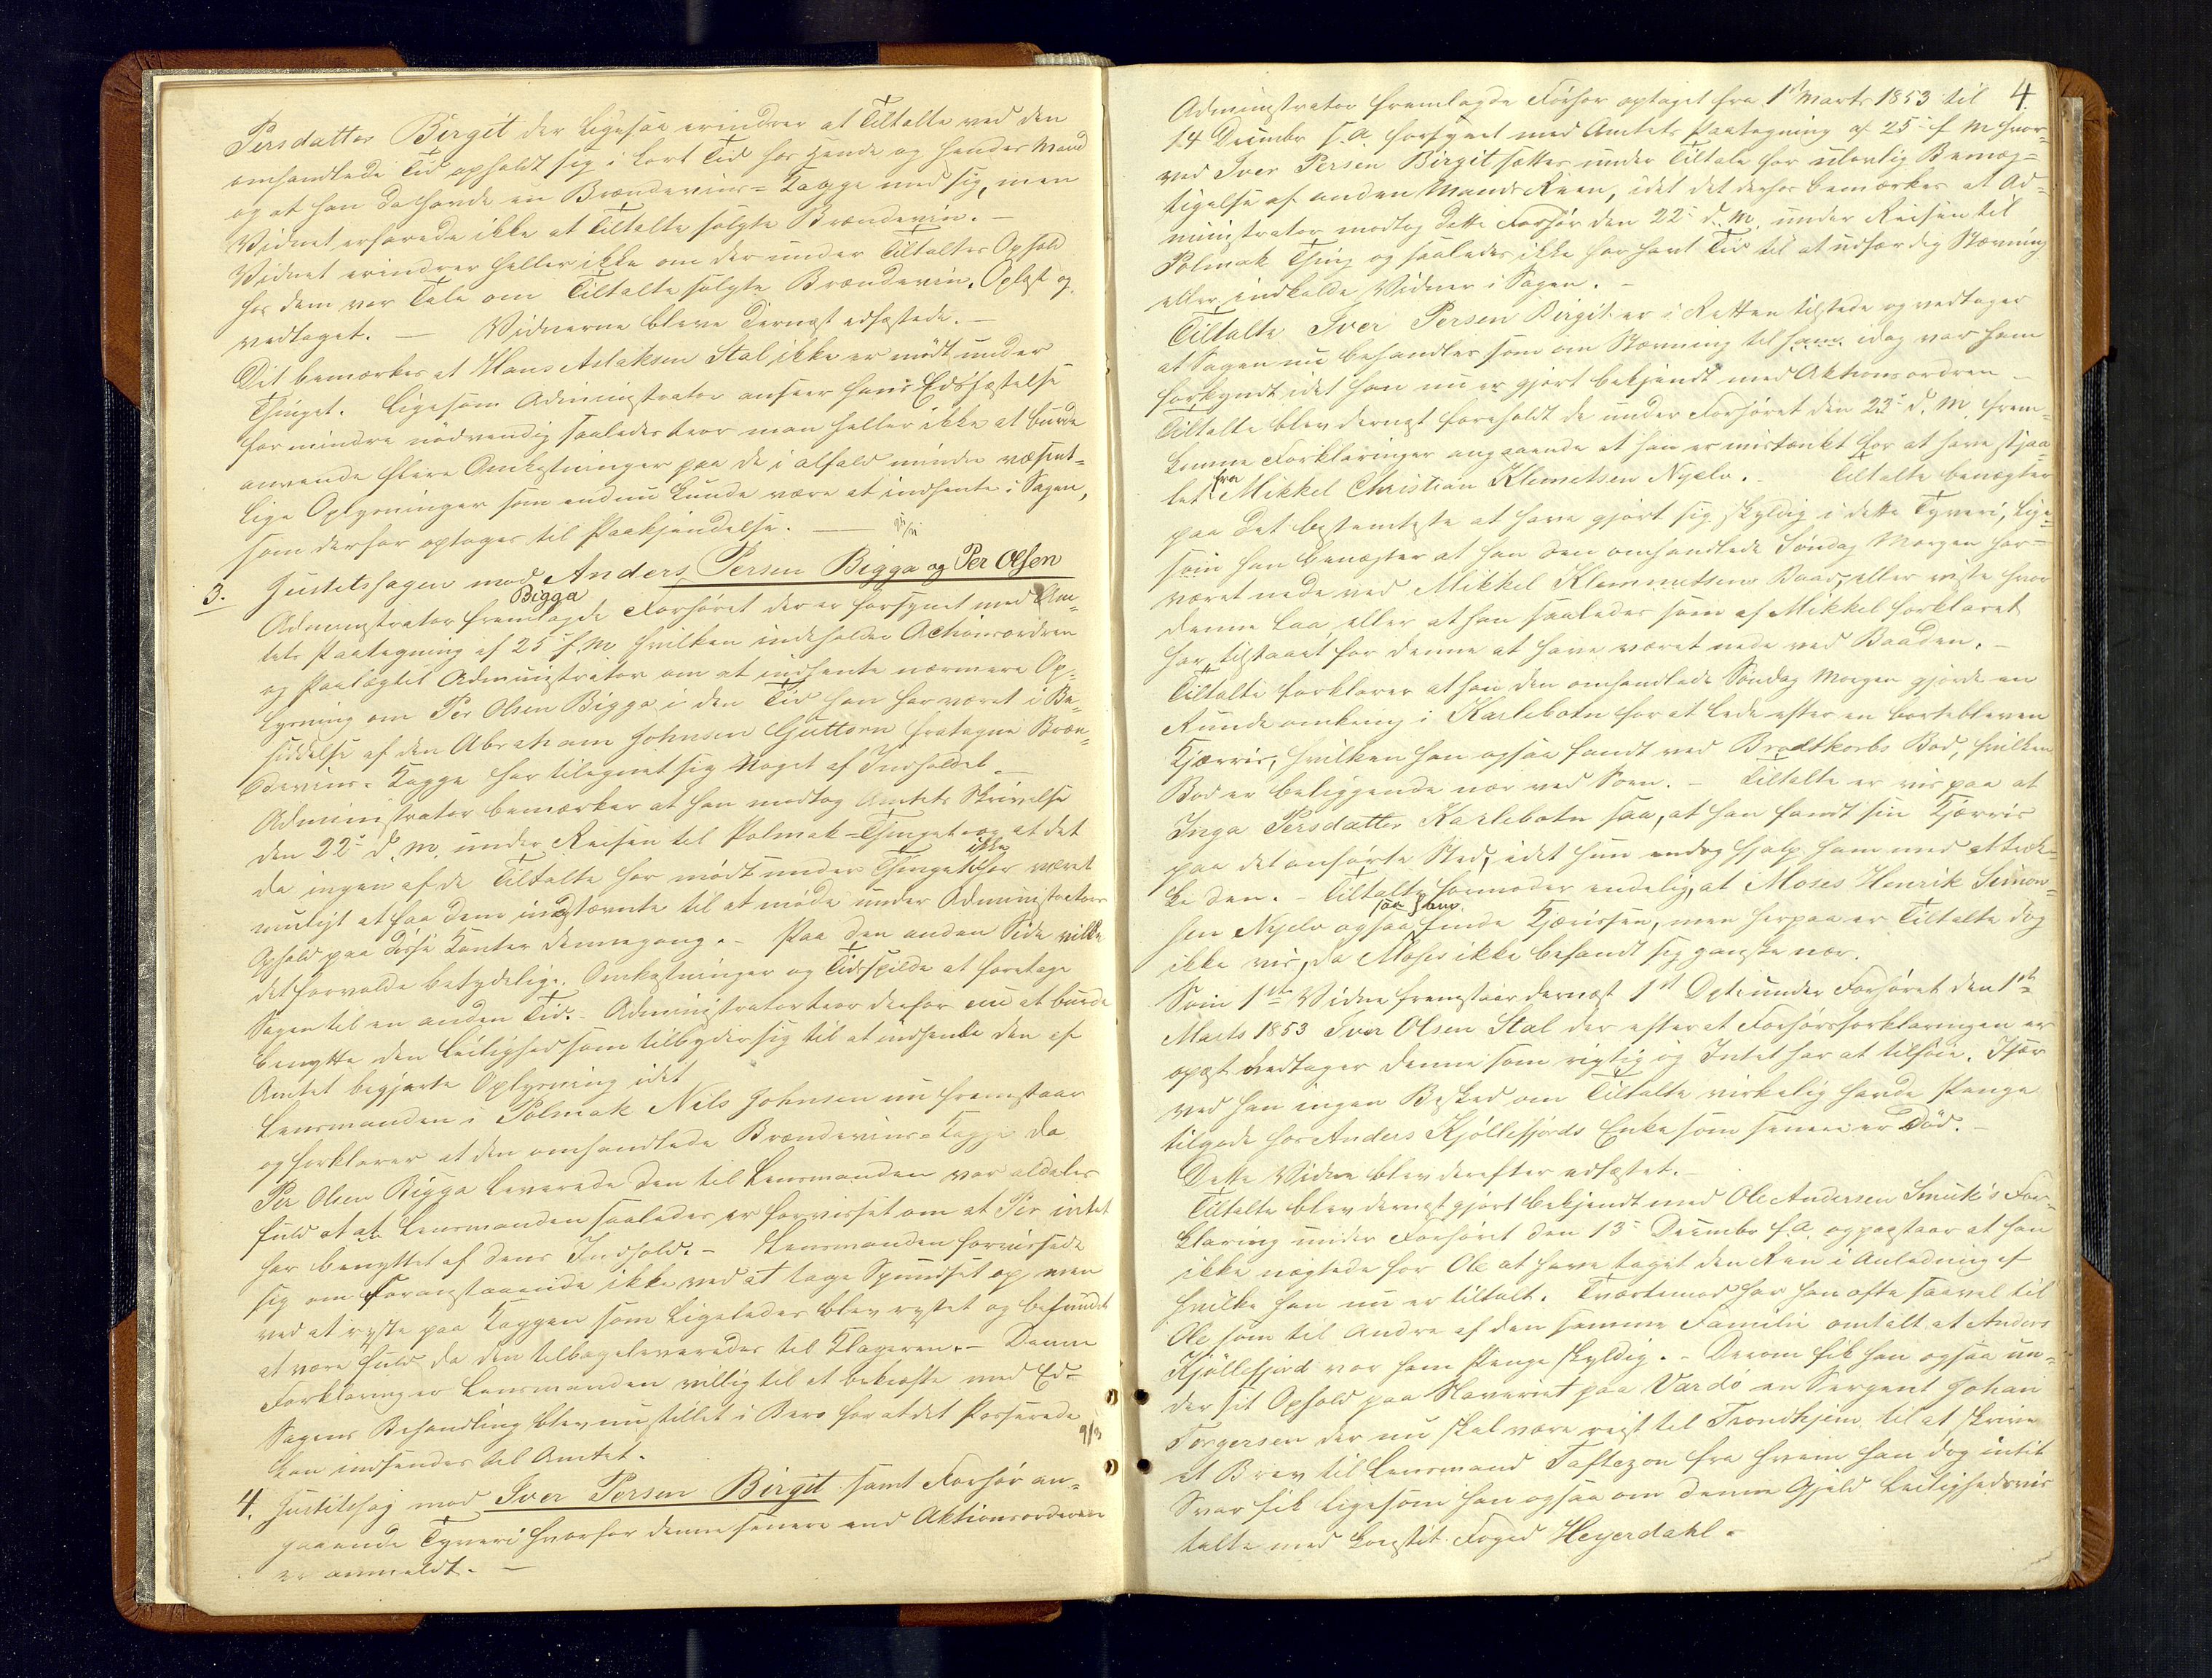 Persdatter Birgit der ligesaa erindrer at Tiltalte ved den
omhandlede Tid opholdt sig i kort Tid hos hende og hendes Mand
og at han da havde en Brændeviins-Kagge med sig, men
Vidnet erfarede ikke at Tiltalte solgte Brændeviin. -
Vidnet erindrer heller ikke om der under Tiltaltes Ophold
hos dem var Tale om Tiltalte solgte Brændeviin. Oplæst og
vedtaget. - Vidnerne bleve dernæst edfæstede. -
Det bemærkes at Hans Aslaksen Stal ikke er mødt under
Thinget. Ligesom Administrator anseer hans Edsfæstelse
for mindre nødvendig saaledes troer man heller ikke at burde
anvende flere Omkostninger paa de i alfald mindre væsent-
lige Oplysninger som endnu kunde være at indhente i Sagen,
som derfor optages til Paakjendelse. -
3. Justitssagen mod Anders Persen Bigga og Per Olsen
Bigga
Administrator fremlagde Forhøret der er forsynet med Am-
tets Paategning af 25 f. M. hvilken indeholder Actionsordren
og Paalæg til Administrator om at indhente nærmere Op-
lysning om Per Olsen Bigga i den Tid han har været i Be-
siddelse af den Abraham Johnsen Guttorm fratagne Bræn-
deviins-Kagge har tilegnet sig Noget af Indholdet -
Administrator bemærker at han modtog Amtets Skrivelse
den 22 d. M. under Reisen til Polmak-Thinget og at det
da ingen af de Tiltalte har mødt under Thinget ikke har været
muligt at faa dem indstævnte til at møde under Administrators
Ophold paa disse Kanter dennegang. - Paa den anden Side vilde
det forvolde betydelige Omkostninger og Tidsspilde at foretage
Sagen til en anden Tid. - Administrator troer derfor nu at burde
benytte den Leilighed som tilbyder sig til at indhente den af
Amtet begjærte Oplysning idet
Lensmanden i Polmak Nils Johnsen nu fremstaar
og forklarer at den omhandlede Brændeviins-Kagge da
Per Olsen Bigga leverede den til Lensmanden var aldeles
fuld at at Lensmanden saaledes er forvisset om at Per intet
har benyttet af dens Indhold. - Lensmanden forvissede
sig om Foranstaaende ikke ved at tage Spundset op men
ved at ryste paa Kaggen som ligeledes blev rystet og befundet
at være fuld da den tilbageleveredes til Klageren. - Denne
Forklaring er Lensmanden villig til at bekræfte med Ed -
Sagens Behandling blev nu stillet i Bero for at det Passerede
kan indsendes til Amtet.
9/3
4. Justitssag mod Iver Persen Birgit samt Forhør an-
gaaende Tyveri hvorfor denne senere end Aktionsordren
er anmeldt. -
4
Administrator fremlagde Forhør optaget fra 1 Marts 1853 til
14 Decembr s.A. forsynet med Amtets Paategning af 25 f M hvor-
ved Iver Persen Birgit sættes under Tiltale for ulovlig Bemæg-
tigelse af anden Mands Reen, idet det derhos bemærkes at Ad-
ministrator modtog dette Forhør den 22 d. M. under Reisen til
Polmak Thing og saaledes ikke har havt Tid til at udfærdig Stævning
eller indkalde Vidner i Sagen. -
Tiltalte Iver Persen Birgit er i Retten tilstede og vedtager
at Sagen nu behandles som om Stævning til ham idag var ham
forkyndt idet han nu er gjort bekjendt med Aktionsordren -
Tiltalte blev dernæst foreholdt de under Forhøret den 23 d. M. frem-
komne Forklaringer angaaende at han er mistænkt for at have stjaa-
let fra Mikkel Christian Klemetsen Nyelv. - Tiltalte benægter
paa det bestemteste at have gjort sig skyldig i dette Tyveri, lige-
som han benægter at han den omhandlede Søndag Morgen har
været nede ved Mikkel Klemmetsens Baad, eller viste hvor
denne laa eller at han saaledes som af Mikkel forklaret
har tilstaaet for denne at have været nede ved Baaden. -
Tiltalte forklarer at han den omhandlede Søndag Morgen gjorde en
Runde omkring i Karlebotn for at lede efter en bortebleven
Kjørris, hvilken han ogsaa fandt ved Brodtkorbs Bod, hvilken
Bod er beliggende nær ved Søen. - Tiltalte er vis paa at
Inga Persdatter Karlebotn saa, at han fandt sin Kjørris
paa det anførte Sted, idet hun endog hjalp ham med at træk-
ke den. - Tiltalte formoder endelig, at Moses Henrik Simon-
sen Nyelv ogsaa saa ham finde Kjørissen, men herpaa er Tiltalte dog
ikke vis, da Moses ikke befandt sig ganske nær.
Som 1ste Vidne fremstaar dernæst 1st Dpt under Forhøret den 1ste
Marts 1853 Iver Olsen Stal der efter at Forhørsforklaringen er
oplæst vedtager denne som rigtig og Intet har at tilføie. Især
ved han ingen Besked om Tiltalte virkelig havde Penge
tilgode hos Anders Kjøllefjords Enke som senere er Død. -
Dette Vidne blev derefter edfæstet. -
Tiltalte blev dernæst gjort bekjendt med Ole Andersen Smuk's For-
klaring under Forhøret den 13 Decembr f.A. og paastaar at han
ikke nægtede for Ole at have taget den Ren i Anledning af
hvilke han nu er tiltalt. Tvertimod har han ofte saavel til
Ole som til Andre af den samme Familie omtalt at Anders
Kjøllefjord var ham Penge skyldig. - Derom fik han ogsaa un-
der sit Ophold paa Slaveriet paa Vardø en Sergent Johan
Torgersen der nu skal være reist til Trondhjem til at skrive
et Brev til Lensmand Taftezon fra hvem han dog intet
Svar fik ligesom han ogsaa om denne Gjæld leilighedsvis
talte med Const. Foged Heyerdahl.